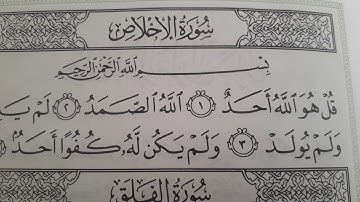 سُورَةُ الإِخْلَاصِ
بِسْمِ اللَّهِ الرَّحْمَٰنِ الرَّحِيمِ
قُلْ هُوَ اللَّهُ أَحَدٌ ١ اللَّهُ الصَّمَدُ ٢ لَمْ يَلِ
وَلَمْ يُولَدْ ٣ وَلَمْ يَكُن لَّهُ كُفُوًا أَحَدٌ
سُورَةُ الفَلَقِ